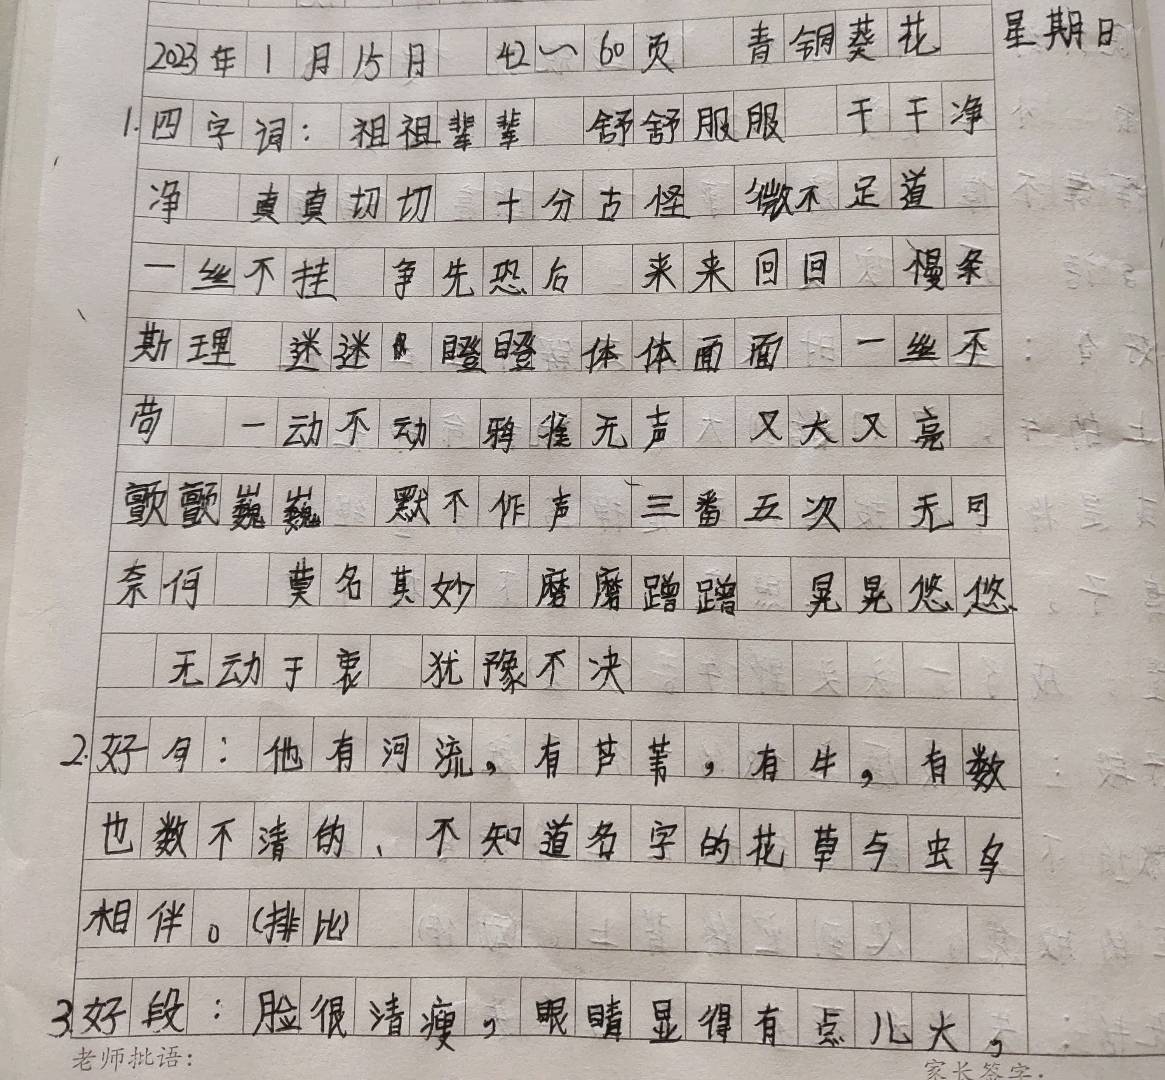 2023年1月15月 42~60页 青铜葵花 星期日
1.四字词：祖祖辈辈 舒舒服服 干干净
净 真真切切 十分古怪 微不足道
一丝不挂 争先恐后 来来回回 慢条
斯理 迷迷瞪瞪 体体面面 一丝不
苟 一动不动 鸦雀无声 又大又亮
颤颤巍巍 默不作声 三番五次 无可
奈何 莫名其妙 磨磨蹭蹭 晃晃悠悠
无动于衷 犹豫不决
2.好句：他有河流，有芦苇，有牛，有数
也数不清的、不知道名字的花草与虫鸟
相伴。(排比)
3.好段：脸很清瘦，眼睛显得有点儿大，
老师批语：
家长签字：